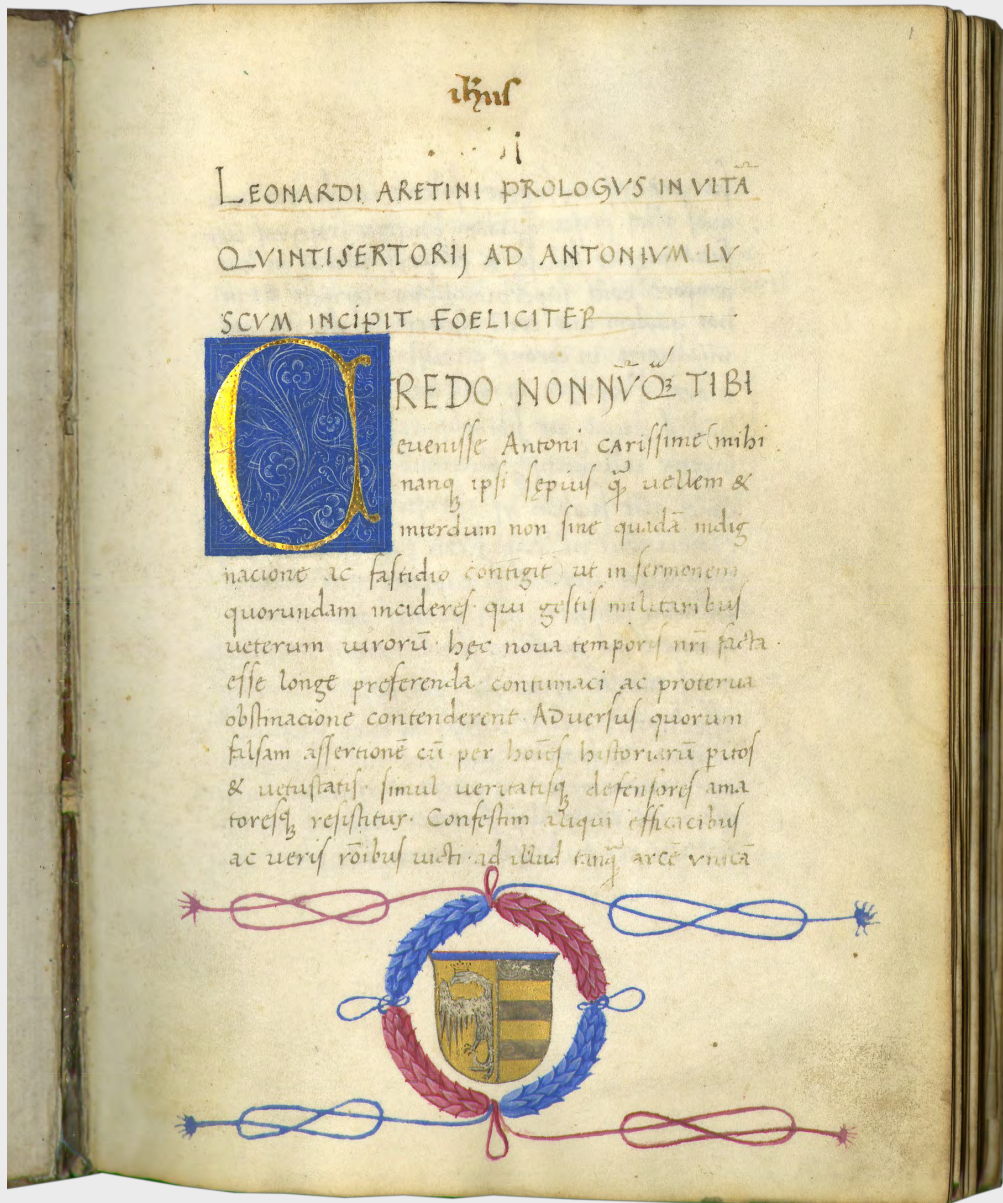 1
ihus
LEONARDI ARETINI PROLOGVS IN VITĀ
QVINTISERTORIJ AD ANTONIVM LV
SCVM INCIPIT FOELICITER
CREDO NONNV̄Q̄Ʒ TIBI
euenisse Antoni cArissime (mihi
nanqꝫ ipsi sępius qᷓ uellem &
interdum non sine quadā indig
nacione ac fastidio contigit) ut in sermonem
quorundam incideres· qui gestis militaribus
ueterum uirorū· hęc noua temporis nr̄i facta·
esse longe preferenda contumaci ac proterua
obstinacione contenderent· ADuersus quorum
falsam assertionē cū per hoīes historiarū ꝑitos
& uetustatis· simul ueritatisqꝫ defensores ama
toresqꝫ resistitur· Confestim aliqui efficacibus
ac ueris rōibus uicti· ad illud tanqᷓ arcē vnicā